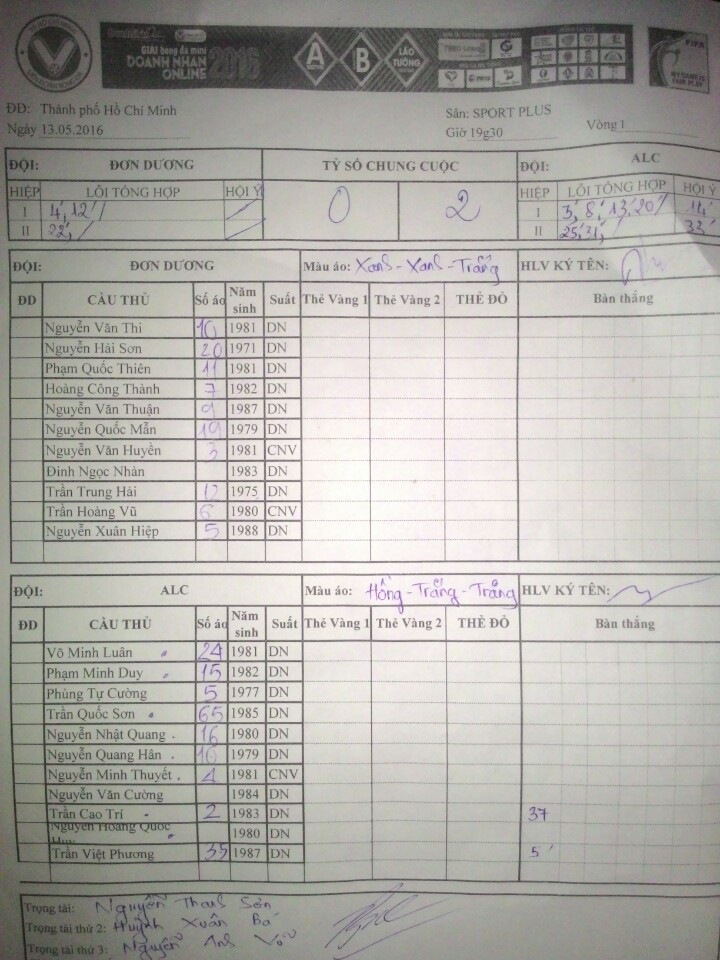 GIẢI bóng đá mini
DOANH NHÂN 2016
ONLINE
A B LÃO TƯỚNG
FIFA
MY GAME IS FAIR PLAY
ĐĐ: Thành phố Hồ Chí Minh
Sân: SPORT PLUS
Ngày 13.05.2016
Giờ 19g30 Vòng 1
ĐỘI: ĐƠN DƯƠNG TỶ SỐ CHUNG CUỘC ĐỘI: ALC
HIỆP LỖI TỔNG HỢP HỘI Ý 0 2 HIỆP LỖI TỔNG HỢP HỘI Ý
I 4', 12' I 3', 8', 13', 20' 11'
II 22', II 25', 31', 33'
ĐỘI: ĐƠN DƯƠNG Màu áo: Xanh - Xanh - Trắng HLV KÝ TÊN:
ĐD CẦU THỦ Số áo Năm sinh Suất Thẻ Vàng 1 Thẻ Vàng 2 THẺ ĐỎ Bàn thắng
Nguyễn Văn Thi 10 1981 DN
Nguyễn Hải Sơn 20 1971 DN
Phạm Quốc Thiên 11 1981 DN
Hoàng Công Thành 7 1982 DN
Nguyễn Văn Thuận 9 1987 DN
Nguyễn Quốc Mẫn 19 1979 DN
Nguyễn Văn Huyền 3 1981 CNV
Đinh Ngọc Nhàn 1983 DN
Trần Trung Hải 12 1975 DN
Trần Hoàng Vũ 6 1980 CNV
Nguyễn Xuân Hiệp 5 1988 DN
ĐỘI: ALC Màu áo: Hồng - Trắng - Trắng HLV KÝ TÊN:
ĐD CẦU THỦ Số áo Năm sinh Suất Thẻ Vàng 1 Thẻ Vàng 2 THẺ ĐỎ Bàn thắng
Võ Minh Luân 24 1981 DN
Phạm Minh Duy 15 1982 DN
Phùng Tự Cường 5 1977 DN
Trần Quốc Sơn 65 1985 DN
Nguyễn Nhật Quang 16 1980 DN
Nguyễn Quang Hân 10 1979 DN
Nguyễn Minh Thuyết 4 1981 CNV
Nguyễn Văn Cường 1984 DN
Trần Cao Trí 2 1983 DN 37
Nguyễn Hoàng Quốc Huy 1980 DN
Trần Việt Phương 35 1987 DN 5'
Trọng tài: Nguyễn Thanh Sơn
Trọng tài thứ 2: Huỳnh Xuân Bá
Trọng tài thứ 3: Nguyễn Anh Vũ